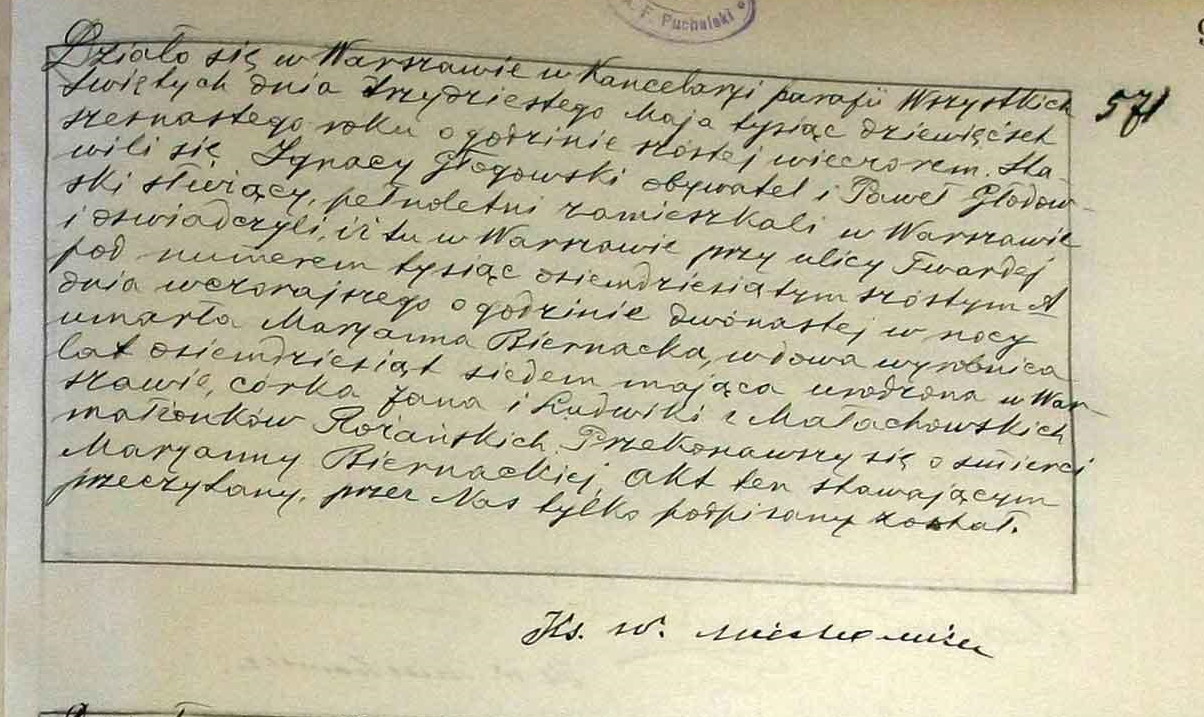 F. Puchalski
Działo się w Warszawie w Kancelaryi parafii Wszystkich
Świętych dnia trzydziestego Maja tysiąc dziewięćset
szesnastego roku o godzinie szóstej wieczorem. Sta-
wili się Ignacy Głogowski obywatel i Paweł Głodow-
ski służący, pełnoletni zamieszkali w Warszawie
i oświadczyli, iż tu w Warszawie przy ulicy Twardej
pod numerem tysiąc osiemdziesiątym szóstym A
dnia wczorajszego o godzinie dwónastej w nocy
umarła Maryanna Biernacka, wdowa wyrobnica
lat osiemdziesiąt siedem mająca urodzona w War-
szawie, córka Jana i Ludwiki z Małachowskich
małżonków Rożańskich. Przekonawszy się o śmierci
Maryanny Biernackiej, Akt ten stawającym
przeczytany, przez Nas tylko podpisany został.
571
Ks. W.